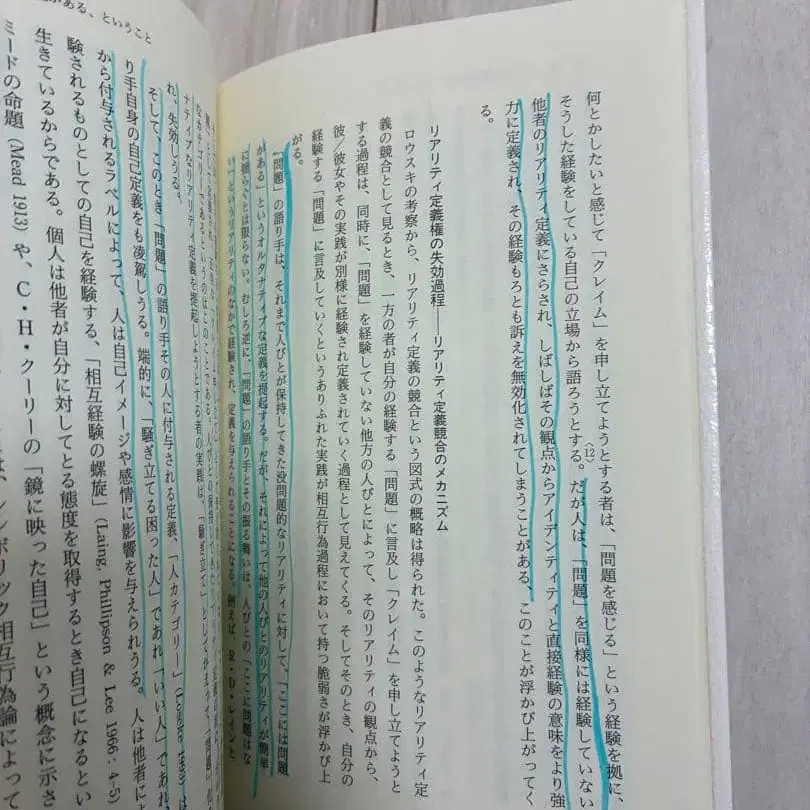 何とかしたいと感じて「クレイム」を申し立てようとする者は、「問題を感じる」という経験を拠に、
そうした経験をしている自己の立場から語ろうとする。〈12〉だが人は、「問題」を同様には経験していない
他者のリアリティ定義にさらされ、しばしばその観点からアイデンティティと直接経験の意味をより強
力に定義され、その経験もろとも訴えを無効化されてしまうことがある、このことが浮かび上がってく
る。
リアリティ定義権の失効過程――リアリティ定義競合のメカニズム
ロウスキの考察から、リアリティ定義の競合という図式の概略は得られた。このようなリアリティ定
義の競合として見るとき、一方の者が自分の経験する「問題」に言及し「クレイム」を申し立てようと
する過程は、同時に、「問題」を経験していない他方の人びとによって、そのリアリティの観点から、
彼/彼女やその実践が別様に経験され定義されていく過程として見えてくる。そしてそのとき、自分の
経験する「問題」に言及していくというありふれた実践が相互行為過程において持つ脆弱さが浮かび上
がる。
「問題」の語り手は、それまで人びとが保持してきた没問題的なリアリティに対して、「ここには問題
がある」というオルタナティブな定義を提起する。だが、それによって他の人びとのリアリティが簡単
に揺らぐとは限らない。むしろ逆に、「問題」の語り手とその振る舞いは、人びとの「ここに問題はな
い」というリアリティのなかで経験され、定義を与えられることになる。例えば、R・D・レインと
がある、ということ
なカテゴリー」であるというのはこのことである。
ナティブなリアリティ定義を提起しようとする者の実践は、「騒ぎ立て」として
れ、失効しうる。
そして、このとき「問題」の語り手その人に付与される定義、「人カテゴリー」
り手自身の自己定義をも凌駕しうる。端的に、「騒ぎ立てる困った人」であれ「いい人」であれ、
から付与されるラベルによって、人は自己イメージや感情に影響を与えられうる。人は他者によ
験されるものとしての自己を経験する、「相互経験の螺旋」(Laing, Phillipson & Lee 1966: 4-5)
生きているからである。個人は他者が自分に対してとる態度を取得するとき自己になるとい
ミードの命題 (Mead 1913) や、C・H・クーリーの「鏡に映った自己」という概念に示さ
シンボリック相互行為論によって